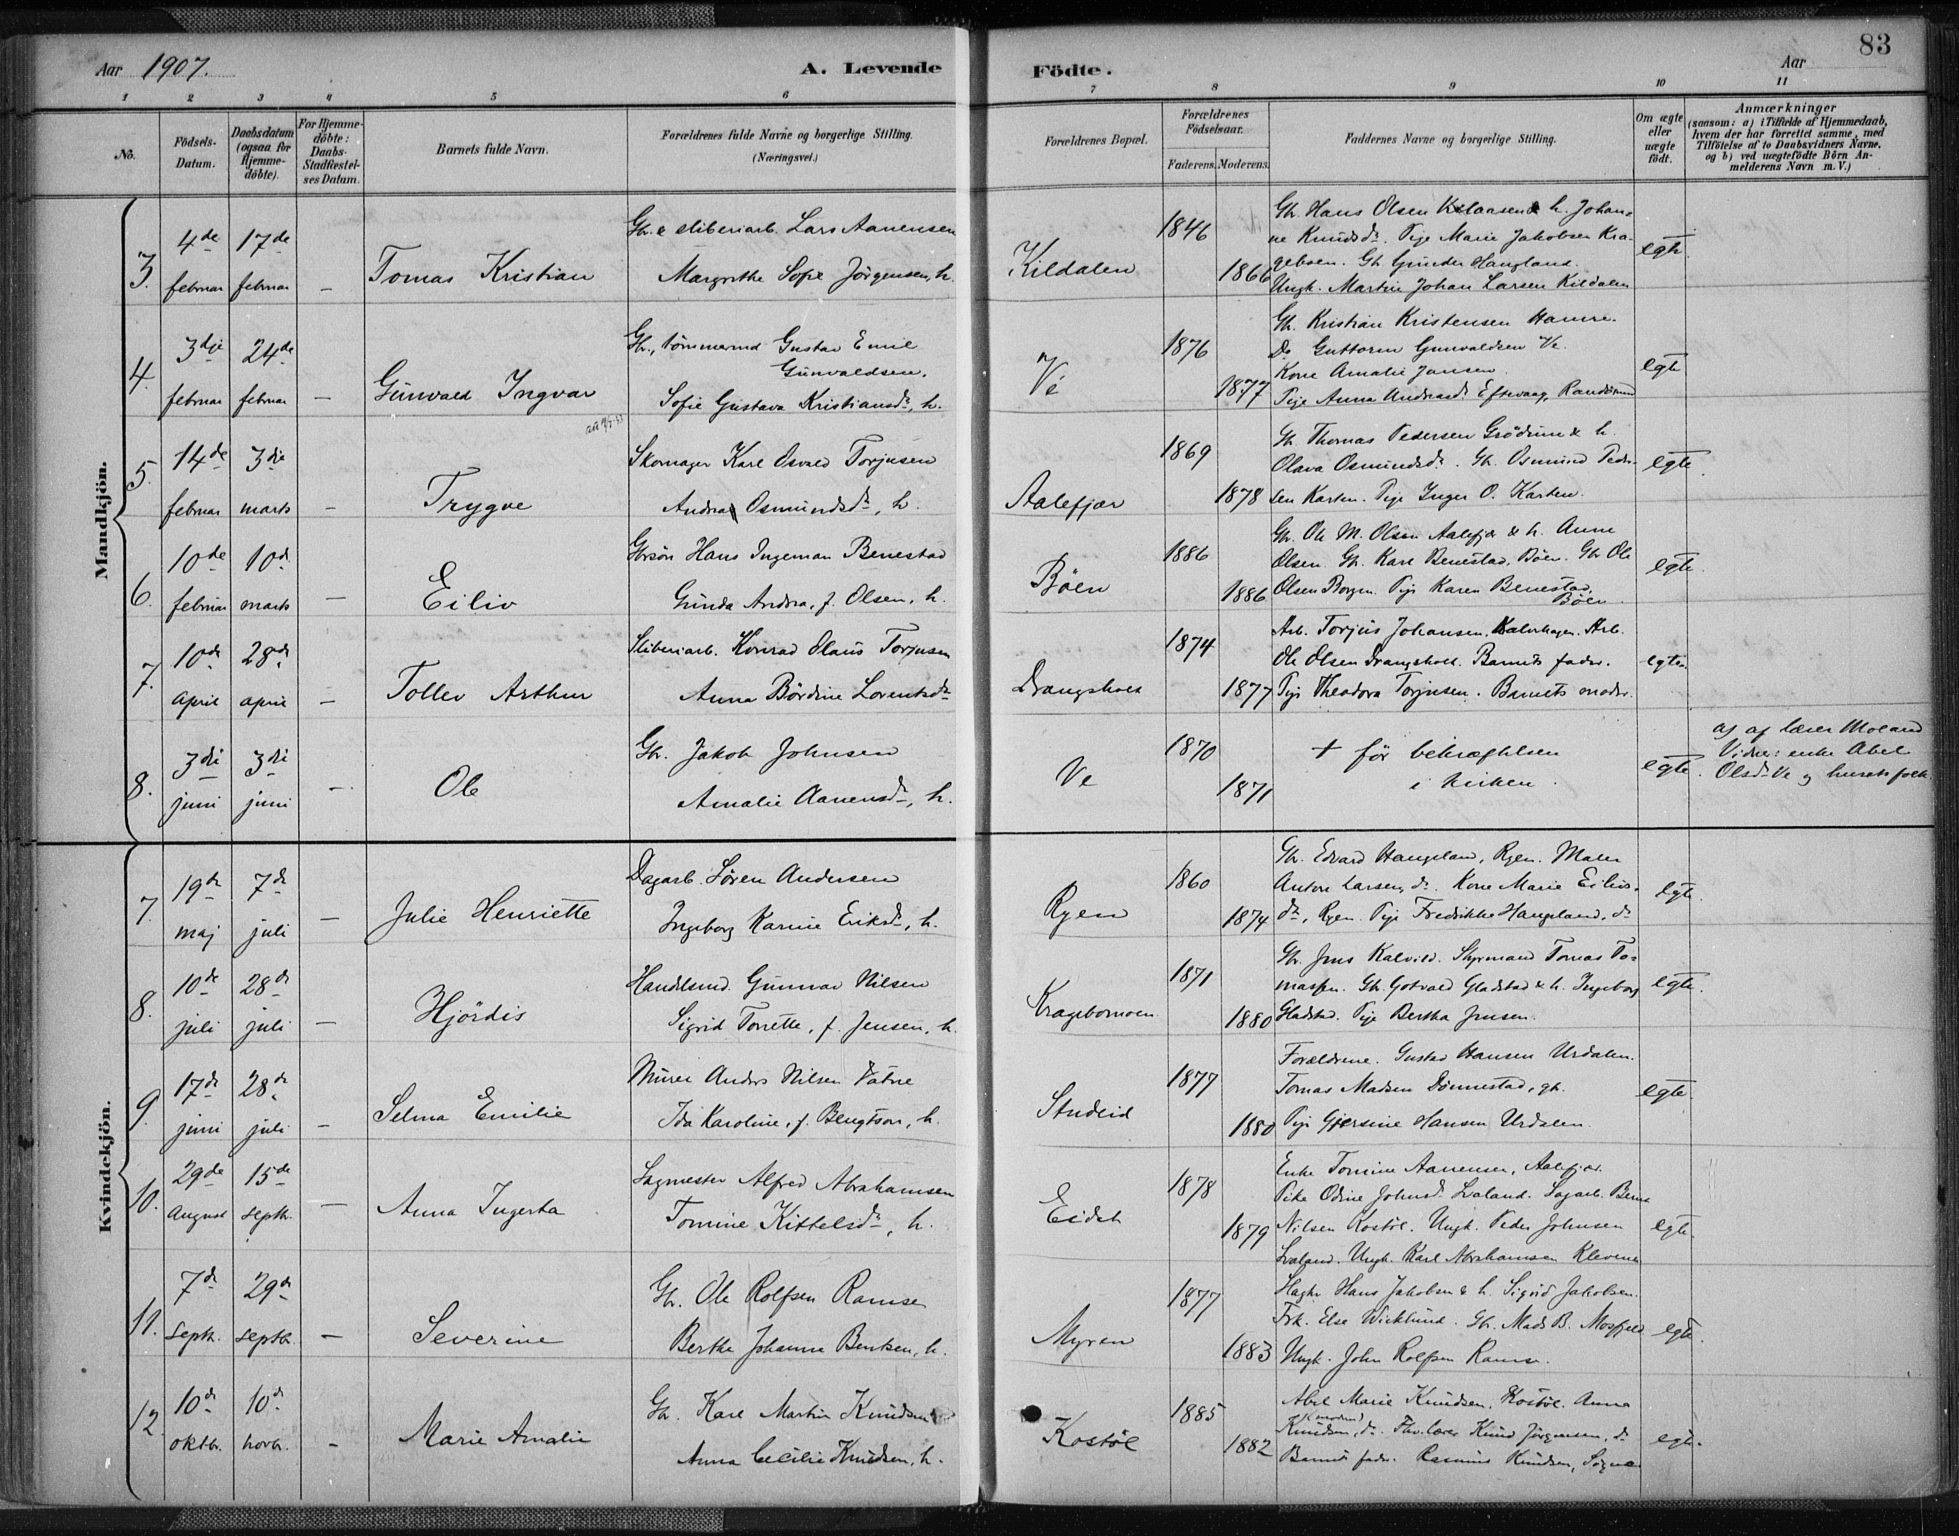 83
Aar 1907. A. Levende Födte. Aar
1 2 3 4 5 6 7 8 9 10 11
No.
Födsels-Datum.
Daabsdatum (ogsaa for Hjemme-döbte).
For Hjemme-döbte: Daabs-Stadfæstel-ses Datum.
Barnets fulde Navn.
Forældrenes fulde Navne og borgerlige Stilling. (Næringsvei.)
Forældrenes Bopæl.
Forældrenes Födselsaar.
Faderens. Moderens.
Faddernes Navne og borgerlige Stilling.
Om ægte eller uægte födt.
Anmærkninger (saasom: a) i Tilfælde af Hjemmedaab, hvem der har forrettet samme, med Tilföielse af to Daabsvidners Navne, og b) ved uægtefödte Börn An-melderens Navn m. V.)
Mandkjön.
3. 4de februar 17de februar – Tomas Kristian
Gbr. & sliberiarb. Lars Aanensen
Margrethe Sofie Jörgensen, h.
Kildalen 1846 1866
Gbr. Hans Olsen & h. Johan-
ne Knudsdr. Pige Marie Jakobsen Kra-
geboen. Gbr. Gunder Haugland.
Ungk. Martin Johan Larsen Kildalen
egte
4. 3dje februar 24de februar – Gunvald Ingvar
Gbr., tömmermd Gustav Emil
Gunvaldsen.
Sofie Gustava Kristiansdr, h.
Ve 1876 1877
Gbr. Kristian Kristensen Hamre.
Do Guttorm Gunvaldsen Ve.
Kone Amalie Jansen.
Pige Anna Andreasdr Eftevaag, Randösund
egte
5. 14de februar 3die marts – Trygve
Skomager Karl Osvald Torjusen
Andrea Osmundsdr, h.
Aalefjær 1869 1878
Gbr. Thomas Pedersen Grödum & h.
Olava Osmundsdr. Gbr. Osmund Peder-
sen Karten. Pige Inger O. Karten.
egte.
6. 10de februar 10de marts – Eiliv
Gbrsön Hans Ingeman Benestad
Gunda Andrea, f. Olsen, h.
Böen 1886 1886
Gbr. Ole M. Olsen Aalefjær & h. Anne
Olsen. Gbr. Karl Benestad, Böen. Gbr Ole
Olsen Borgen. Pige Karen Benestad,
Böen.
egte.
7. 10de april 28de april – Tollev Arthur
Sliberiarb. Konrad Olaus Torjusen
Anna Bördine Lorentsdr
Drangsholt 1874 1877
Arb. Torjus Johansen. Arb.
Ole Olsen Drangsholt. Barnets fader.
Pige Theodora Torjusen. Barnets moder.
egte.
8. 3die juni 3die juni – Ole
Gbr. Jakob Johnsen
Amalie Aanensdr, h.
Ve 1870 1871
+ för bekræftelsen
i kirken.
egte.
a) af lærer Moland
Vidner: enke Abel
Olsdr Ve og husets folk.
Kvindekjön.
7. 19de maj 7de juli – Julie Henriette
Dagarb. Sören Andersen
Ingeborg Karine Eriksdr, h.
Ryen 1860 1874
Gbr. Edvard Haugeland, Ryen. Maler
Anton Larsen, do. Kone Marie Eilivs-
dr, Ryen. Pige Fredrikke Haugeland, do
egte.
8. 10de juli 28de juli – Hjördis
Handlsmd. Gunnar Nilsen
Sigrid Torette, f. Jensen, h.
Kragebomoen 1871 1880
Gbr. Jens Kalvild. Styrmand Tomas To-
massen. Gbr Gotvald Gladstad & h. Ingeborg
Gladstad. Pige Bertha Jensen.
egte.
9. 17de juni 28de juli – Selma Emilie
Murer Anders Nilsen Vatne
Ida Karoline, f. Bengtson, h.
Studeid 1877 1880
Forældrene. Gustav Hansen Urdalen.
Tomas Madsen Dönnestad, gbr.
Pige Gjersine Hansen Urdalen.
egte.
10. 29de august 15de septb. – Anna Ingerta
Sagmester Alfred Abrahamsen
Tomine Kittelsdr, h.
Eidet 1878 1879
Enke Tomine Aanensen, Aalefjær.
Pike Odine Johnsdr Lvaland. Sagarb. Bernt
Nilsen Kostöl. Ungk. Peder Johnsen
Lvaland. Ungk. Karl Abrahamsen Klevene
egte.
11. 7de septb. 29de septb. – Severine
Gbr. Ole Rolfsen Ramse
Berthe Johanne Bentsen, h.
Myren 1877 1883
Hans Jakobsen & h. Sigrid Jakobsen.
Frk. Else Wicklund. Gbr. Mads B. Mosfjeld
Ungk. John Rolfsen Ramse.
egte.
12. 10de oktbr. 10de novbr. – Marie Amalie
Gbr. Karl Martin Knudsen
Anna Cecilie Knudsen, h.
Kostöl 1885 1882
Abel Marie Knudsen, Kostöl. Anna
(moder)
Knudsen, do. Fhv. lærer Knud Jörgensen, do
Barnets fader. Rasmus Knudsen, Sögne
egte.